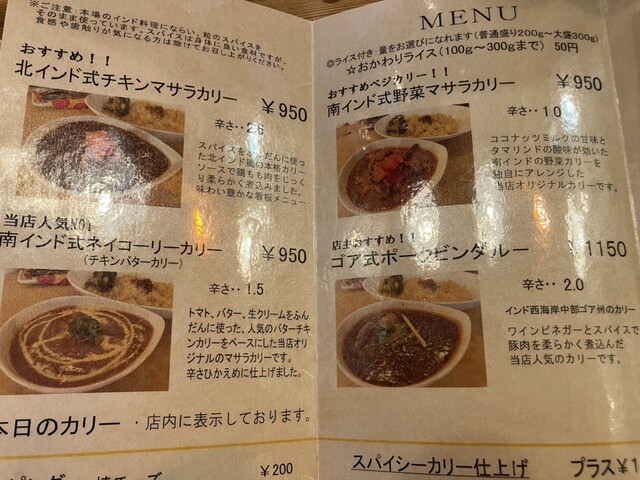 ※ご注意:本場のインド料理にならい、粒のスパイスを
そのまま使っています。スパイスは身体に良い食材ですが、
食感や歯触りが気になる方は除けてお召し上がりください。
おすすめ!!
北インド式チキンマサラカリー ¥950
辛さ‥2.6
スパイスをふんだんに使っ
た北インド風の本格カリー
ソースで鶏もも肉をじっく
り柔らかく煮込みました。
味わい豊かな看板メニュー
当店人気NO1
南インド式ネイコーリーカリー ¥950
(チキンバターカリー)
辛さ‥1.5
トマト、バター、生クリームをふん
だんに使った、人気のバターチキ
ンカリーをベースにした当店オリ
ジナルのマサラカリーです。
辛さひかえめに仕上げました。
本日のカリー ・店内に表示しております。
¥200
MENU
◎ライス付き:量をお選びになれます(普通盛り200g~大盛300g)
☆おかわりライス(100g~300gまで) 50円
おすすめベジカリー!!
南インド式野菜マサラカリー ¥950
辛さ‥1.0
ココナッツミルクの甘味と
タマリンドの酸味が効いた
南インドの野菜カリーを
独自にアレンジした
当店オリジナルカリーです。
店主おすすめ!!
ゴア式ポークビンダルー ¥1150
辛さ‥2.0
インド西海岸中部ゴア州のカリー
ワインビネガーとスパイスで
豚肉を柔らかく煮込んだ
当店人気のカリーです。
スパイシーカリー仕上げ プラス¥1